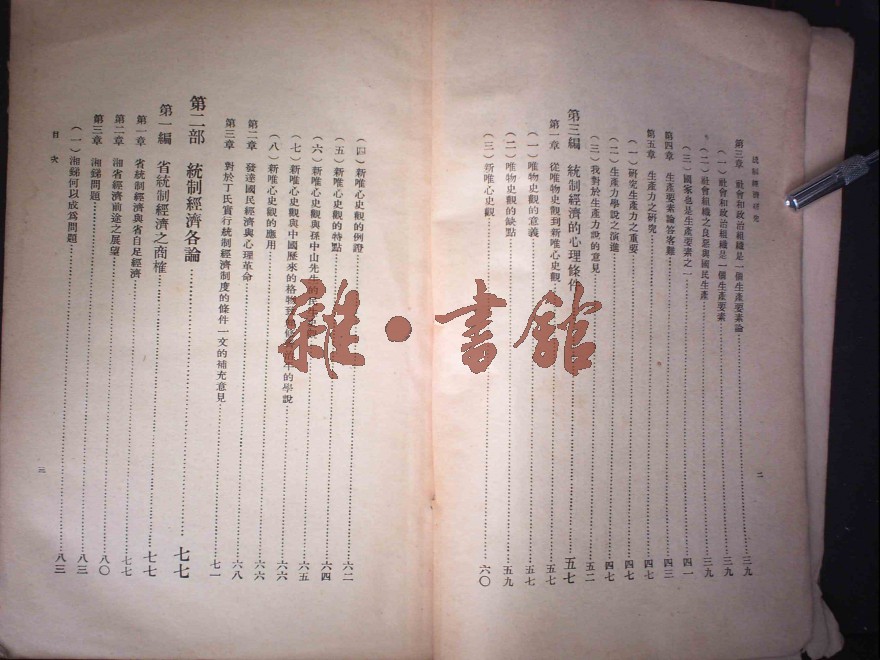 統制經濟研究
二
第三章 社會和政治組織是一個生產要素論 三九
(一)社會和政治組織是一個生產要素 三九
(二)社會組織之良惡與國民生產 三九
(三)國家也是生產要素之一 四一
第四章 生產要素論答客難 四三
第五章 生產力之研究 四七
(一)研究生產力之重要 四七
(二)生產力學說之演進 四七
(三)我對於生產力說的意見 五二
第三編 統制經濟的心理條件 五七
第一章 從唯物史觀到新唯心史觀 五七
(一)唯物史觀的意義 五七
(二)唯物史觀的缺點 五九
(三)新唯心史觀 六〇
(四)新唯心史觀的例證 六二
(五)新唯心史觀的特點 六四
(六)新唯心史觀與孫中山先生的民生史觀 六五
(七)新唯心史觀與中國歷來的格物致知修齊治平的學說 六六
(八)新唯心史觀的應用 六六
第二章 發達國民經濟與心理革命 六八
第三章 對於丁氏實行統制經濟制度的條件一文的補充意見 七一
第二部 統制經濟各論 七七
第一編 省統制經濟之商榷 七七
第一章 省統制經濟與省自足經濟 七七
第二章 湘省經濟前途之展望 八〇
第三章 湘銻問題 八三
(一)湘銻何以成為問題 八三
目次
三
雜·書館